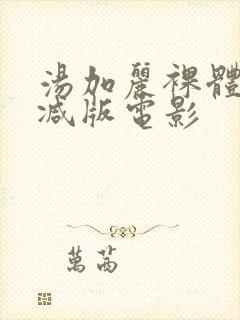 湯加麗裸體
减版電影
萬茜